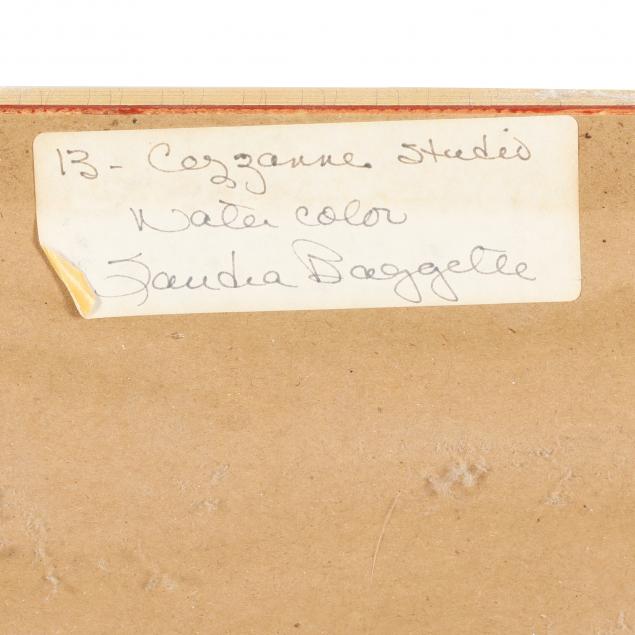 13- Cozzanne Studio
Water color
Sandra Baggette